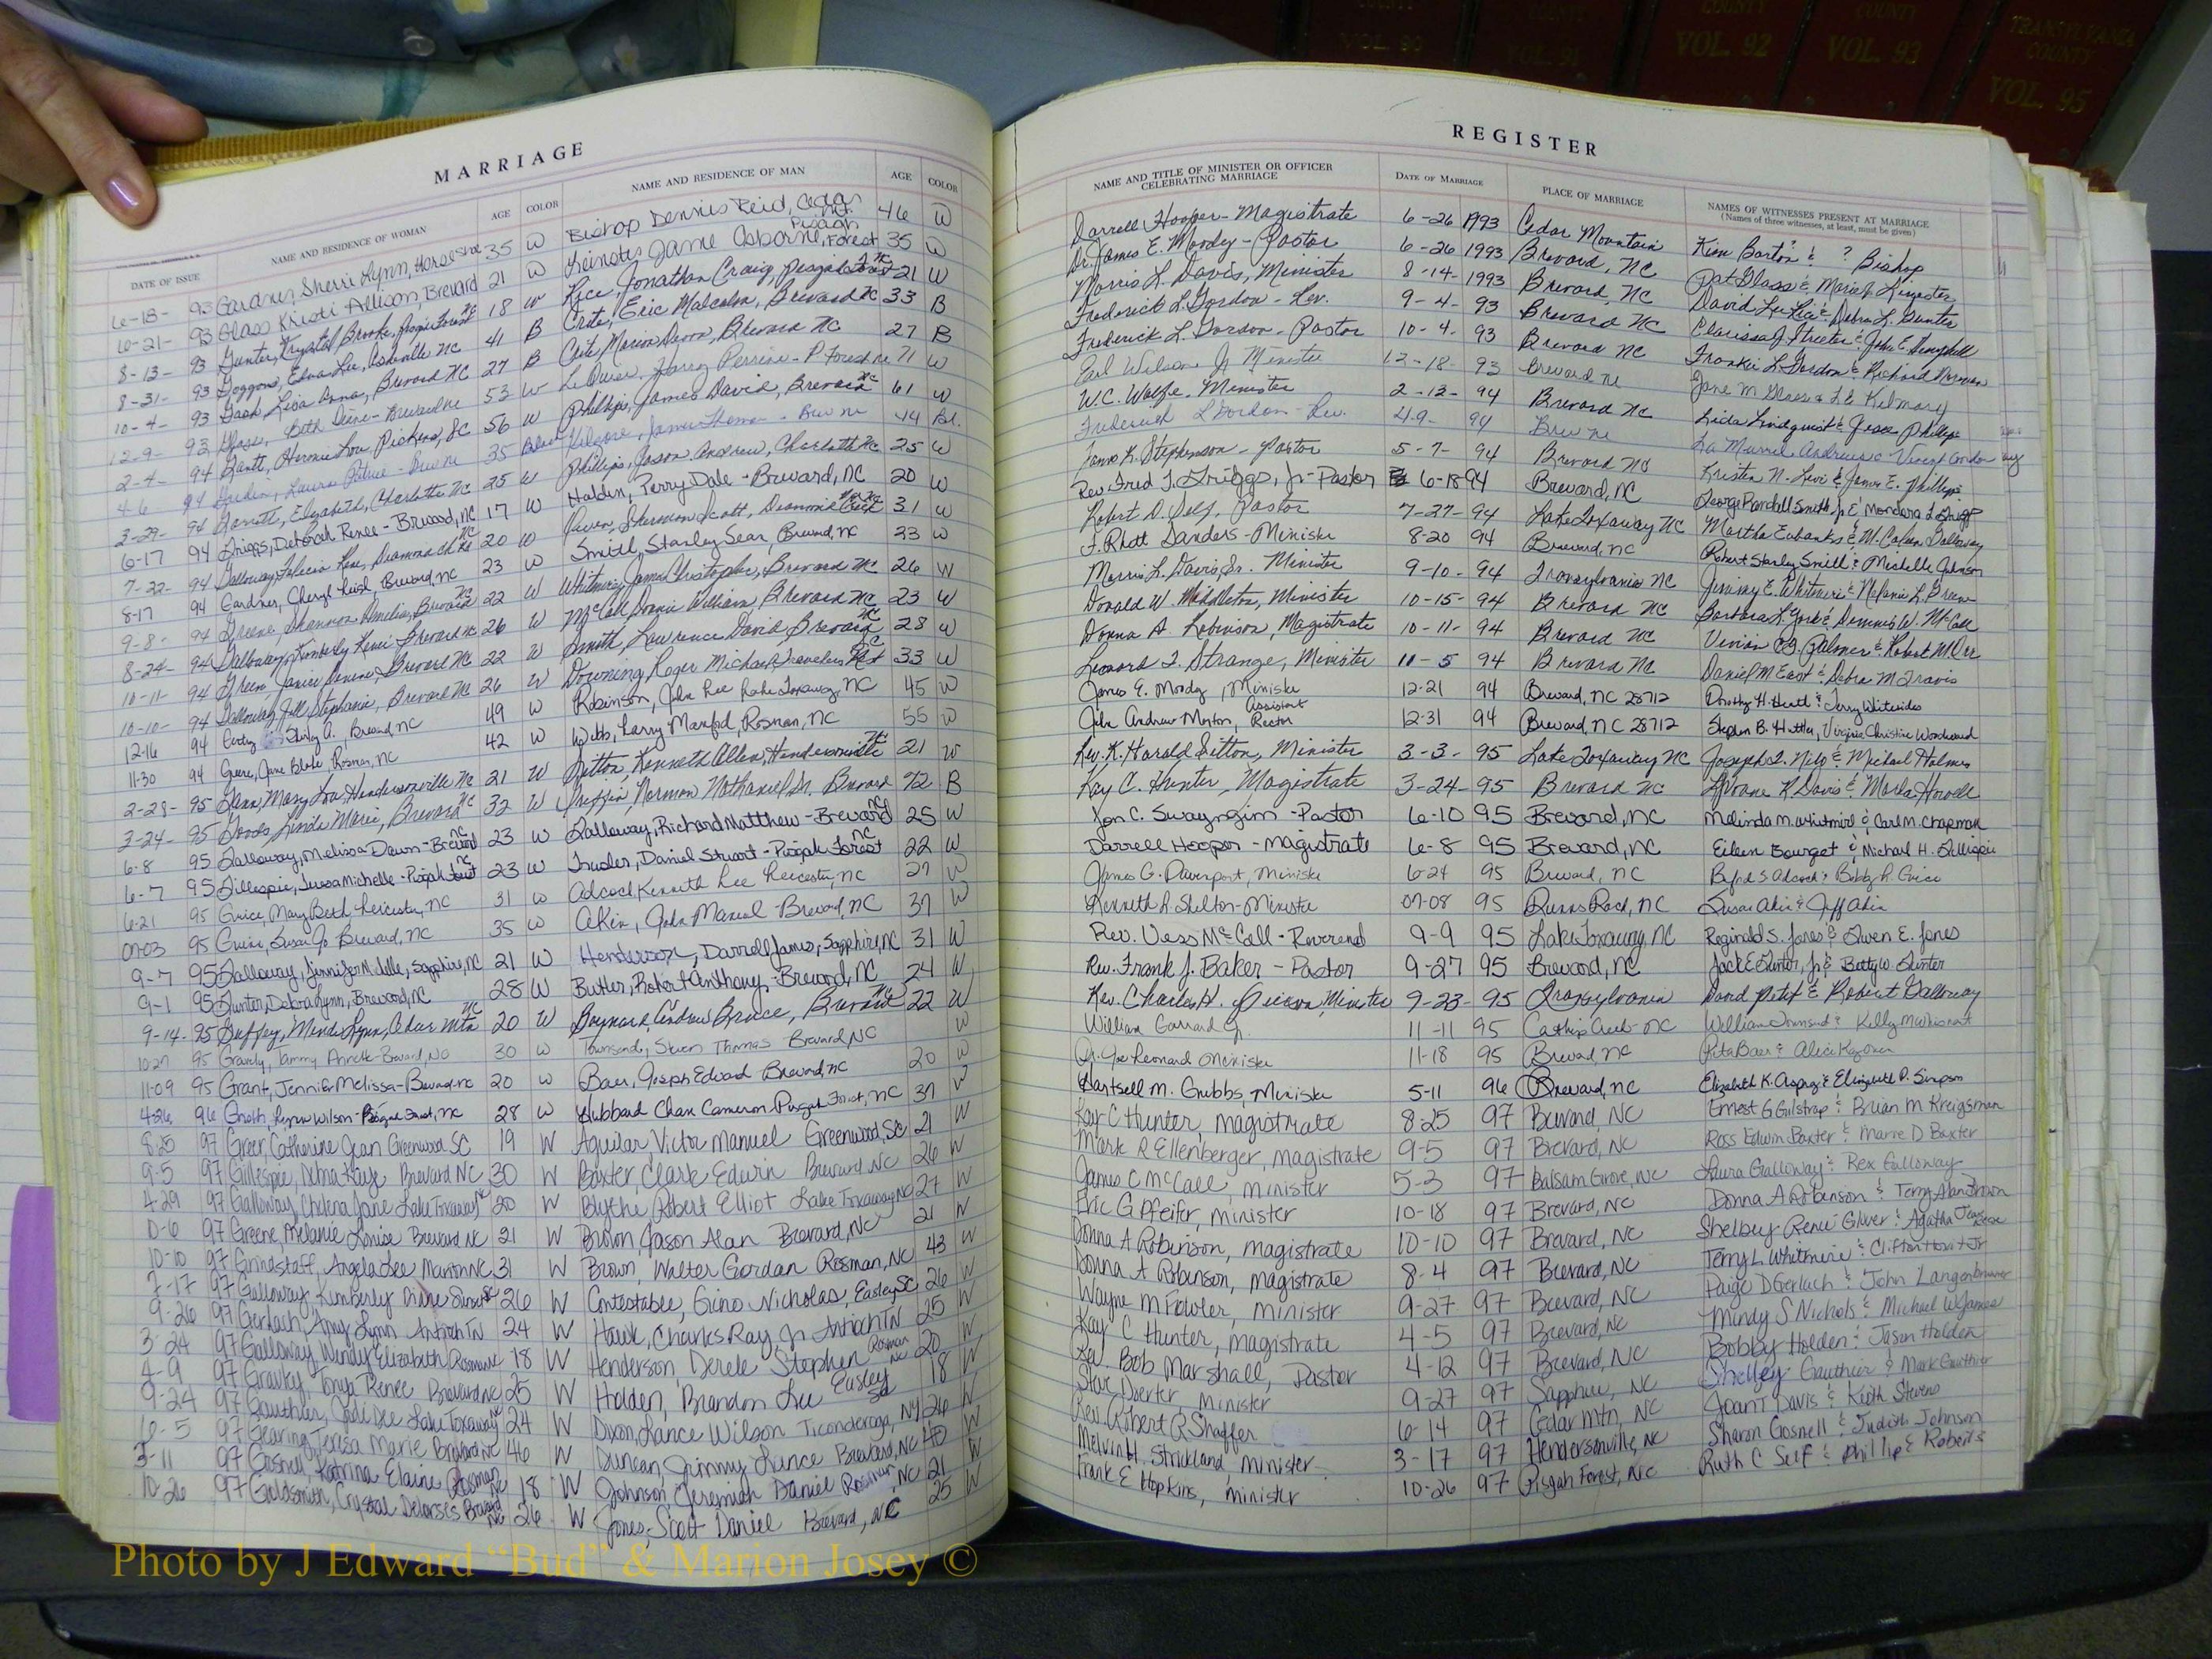 COUNTY
VOL. 90
COUNTY
VOL. 91
COUNTY
VOL. 92
COUNTY
VOL. 93
TRANSYLVANIA
COUNTY
VOL. 95
MARRIAGE
DATE OF ISSUE NAME AND RESIDENCE OF WOMAN AGE COLOR NAME AND RESIDENCE OF MAN AGE COLOR
6-18- 93 Gardner, Sherri Lynn, 35 W Bishop Dennis Reid, Cedar Mt. 46 W
6-21- 93 Glass Kristi Allison, Brevard 21 W Jamie Osborne, Pisgah Forest 35 W
8-13- 93 Gunter, Krystal Brooke, 18 W Rice, Jonathan Craig, Pisgah Forest NC 21 W
8-31- 93 Goggans, Edna Lee, Asheville NC 41 B Crite, Eric Malcolm, Brevard NC 33 B
10-4- 93 Gash, Lisa Anna, Brevard NC 27 B Marion Brevard NC 27 B
12-9- 93 Beth Brevard NC 53 W Harry Perrine - P. Forest NC 71 W
2-4- 94 Gantt, Pickens, SC 56 W Phillips, James David, Brevard NC 61 W
4-6 94 Laura 35 Black Kilgore, James Thomas - Brev NC 44 Bl.
3-29- 94 Garrett, Elizabeth, Charlotte NC 25 W Phillips, Jason Andrew, Charlotte NC 25 W
6-17 94 Griggs, Deborah Renee - Brevard, NC 17 W Holden, Perry Dale - Brevard, NC 20 W
7-22- 94 Galloway, Felecia 20 W Owen, Sherman Scott, 31 W
8-17 94 Gardner, Cheryl Brevard, NC 23 W Smith, Stanley Sean, Brevard, NC 23 W
9-8- 94 Greene, Shannon Amelia, Brevard NC 22 W Whitmire, James Christopher, Brevard NC 26 W
8-24- 94 Galloway, Kimberly Brevard NC 26 W McCall, Donnie William, Brevard NC 23 W
10-11- 94 Green, Janice Brevard NC 22 W Smith, Lawrence David Brevard NC 28 W
10-10- 94 Galloway, Jill Stephanie, Brevard NC 26 W Downing, Roger Michael, Travelers Rest SC 33 W
12-16 94 Shirley A. Brevard, NC 49 W Robinson, John Lee Lake Toxaway, NC 45 W
11-30 94 Jane Blake Rosman, NC 42 W Webb, Larry Manfod, Rosman, NC 55 W
2-28- 95 Glenn, Mary Hendersonville NC 21 W Sitton, Kenneth Allen, Hendersonville NC 21 W
3-24- 95 Woods, Linda Marie, Brevard NC 32 W Griffin, Norman Nathaniel Sr. Brevard 72 B
6-8 95 Galloway, Melissa Dawn - Brevard NC 23 W Galloway, Richard Matthew - Brevard NC 25 W
6-7 95 Gillespie, Teresa Michelle - Pisgah Forest NC 23 W Daniel Stuart - Pisgah Forest NC 22 W
6-21 95 Guice, Mary Beth, Leicester, NC 31 W Adcock, Kenneth Lee Leicester, NC 27 W
07-03 95 Guice, Susan Jo Brevard, NC 35 W Akin, John Manuel - Brevard, NC 37 W
9-7 95 Galloway, Jennifer Michelle, Sapphire, NC 21 W Henderson, Darrell James, Sapphire, NC 31 W
9-1 95 Gunter, Debra Lynn, Brevard, NC 28 W Butler, Robert Anthony - Brevard, NC 24 W
9-14- 95 Guffey, Mendi Lynn, Cedar Mtn NC 20 W Baynard, Andrew Bruce, Brevard NC 22 W
10-27 95 Gravely, Tammy Annette - Brevard, NC 30 W Townsend, Steven Thomas Brevard, NC W
11-09 95 Grant, Jennifer Melissa - Brevard, NC 20 W Baer, Joseph Edward Brevard, NC 20 W
4-26 96 Groth, Wilson - Pisgah Forest, NC 28 W Hubbard Chase Cameron Pisgah Forest, NC 37 W
8-25 97 Greer, Catherine Jean Greenwood, SC 19 W Aguilar, Victor Manuel Greenwood, SC 21 W
9-5 97 Gillespie, Debra Kaye Brevard NC 30 W Baxter, Clark Edwin Brevard, NC 26 W
4-29 97 Galloway, Chelena Jane Lake Toxaway NC 20 W Blythe, Robert Elliot Lake Toxaway NC 27 W
10-6 97 Greene, Melanie Louise Brevard NC 21 W Brown, Jason Alan Brevard, NC 21 W
10-10 97 Grindstaff, Angela Lee Marion NC 31 W Brown, Walter Gordan Rosman, NC 43 W
7-17 97 Galloway, Kimberly Diane 26 W Contestable, Gino Nicholas, Easley SC 26 W
9-26 97 Gerlach, Amy Lynn Antioch TN 24 W Hawk, Charles Ray Jr Antioch TN 25 W
3-24 97 Galloway, Wendy Elizabeth Rosman NC 18 W Henderson, Derek Stephen Rosman NC 20 W
4-9 97 Gravley, Tonya Renee Brevard NC 25 W Holden, Brandon Lee Easley SC 18 W
9-24 97 Gauthier, Lake Toxaway NC 24 W Dixon, Lance Wilson Ticonderoga, NY 26 W
6-5 97 Gearing, Teresa Marie Brevard NC 46 W Duncan, Jimmy Lunce Brevard, NC 40 W
3-11 97 Gosnell, Katrina Elaine Rosman NC 18 W Johnson, Jeremiah Daniel Rosman, NC 21 W
10-26 97 Goldsmith, Crystal Deloris Brevard NC 26 W Jones, Scott Daniel Brevard, NC 25 W
REGISTER
NAME AND TITLE OF MINISTER OR OFFICER CELEBRATING MARRIAGE DATE OF MARRIAGE PLACE OF MARRIAGE NAMES OF WITNESSES PRESENT AT MARRIAGE
(Names of three witnesses, at least, must be given)
Darrell Hooper - Magistrate 6-26 1993 Cedar Mountain Kim Barton & ? Bishop
Dr. James E. Moody - Pastor 6-26 1993 Brevard, NC Pat Glass &
Morris L. Davis, Minister 8-14- 1993 Brevard, NC David & Debra L. Gunter
Frederick L. Gordon - Rev. 9-4- 93 Brevard NC Clarissa J. Streeter & John E.
Frederick L. Gordon - Pastor 10-4- 93 Brevard NC Frankie L. Gordon & Richard
Earl Wilson Jr Minister 12-18- 93 Brevard NC Jane M
W.C. Wolfe - Minister 2-12- 94 Brevard NC Lida Lindquist & Jesse Phillips
Frederick L Gordon - Rev. 4-9- 94 Brev NC
James K. Stephenson - Pastor 5-7- 94 Brevard NC Kristen N. & James E. Phillips
Rev. Fred T. Griggs, Jr - Pastor 6-18 94 Brevard, NC George Randall Smith, Jr &
Robert D. Self, Pastor 7-27- 94 Lake Toxaway NC Martha Eubanks & M. Galloway
F. Rhett Sanders - Minister 8-20 94 Brevard, NC Robert Stanley Smith & Michelle Johnson
Morris L. Davis, Sr. Minister 9-10- 94 Transylvania NC Jimmy E. Whitmire & Melanie L.
Donald W. Middleton, Minister 10-15- 94 Brevard NC Barbara L. York & Dennis W. McCall
Donna A. Robinson, Magistrate 10-11- 94 Brevard NC Vivian Palmer & Robert M Orr
Leonard T. Strange, Minister 11-5 94 Brevard NC Daniel M East & Debra M Travis
James E. Moody, Minister 12-21 94 Brevard, NC 28712 Dorothy H. Heath & Terry Whitesides
John Andrew Morton, Assistant Rector 12-31 94 Brevard, NC 28712 Stephen B. Virginia Christine Woodward
Rev. K. Harold Sitton, Minister 3-3- 95 Lake Toxaway NC & Michael Holmes
Kay C. Hunter, Magistrate 3-24- 95 Brevard NC K Davis & Marla Howell
Jon C. Swayngim - Pastor 6-10 95 Brevard, NC Melinda M. Whitmire & Carl M. Chapman
Darrell Hooper - Magistrate 6-8 95 Brevard, NC Eileen Bourget & Michael H. Gillespie
James G. Davenport, Minister 6-24 95 Brevard, NC Byrd S Adcock & Bobby R. Guice
Kenneth R. Shelton - Minister 07-08 95 NC Susan Akin & Jeff Akin
Rev. Vess McCall - Reverend 9-9 95 Lake Toxaway, NC Reginald S. Jones & Gwen E. Jones
Rev. Frank J. Baker - Pastor 9-27 95 Brevard, NC Jack E Gunter, Jr & Betty W. Gunter
Rev. Charles H. Minister 9-23- 95 Transylvania David & Robert Galloway
William Garrard Jr. 11-11 95 Catheys Creek - NC William Townsend & Kelly McWhisnant
Dr. Joe Leonard Minister 11-18 95 Brevard, NC Rita Baer & Alice Kay Owen
Hartsell M. Grubbs, Minister 5-11 96 Brevard, NC Elizabeth K. & Elizabeth P. Simpson
Kay C Hunter, Magistrate 8-25 97 Brevard, NC Ernest G Gilstrap & Brian M Kreigsman
Mark R Ellenberger, Magistrate 9-5 97 Brevard, NC Ross Edwin Baxter & Marie D Baxter
James C McCall, Minister 5-3 97 Balsam Grove, NC Laura Galloway & Rex Galloway
Eric G Pfeifer, Minister 10-18 97 Brevard, NC Donna A Robinson & Terry Alan Brown
Donna A Robinson, Magistrate 10-10 97 Brevard, NC Shelbey Renee Glover & Agatha
Donna A Robinson, Magistrate 8-4 97 Brevard, NC Terry L. Whitmire & Clifton Jr
Wayne M Fowler, Minister 9-27 97 Brevard, NC Paige D Gerlach & John Langenbrunner
Kay C Hunter, Magistrate 4-5 97 Brevard, NC Mindy S Nichols & Michael W James
Rev. Bob Marshall, Pastor 4-12 97 Brevard, NC Bobby Holden & Jason Holden
Steve Doerter, Minister 9-27 97 Sapphire, NC Shelley Gauthier & Mark Gauthier
Rev. Robert R Shaffer 6-14 97 Cedar Mtn, NC Joan T Davis & Keith Stevens
Melvin H. Strickland, Minister 3-17 97 Hendersonville, NC Sharon Gosnell & Judith Johnson
Frank E Hopkins, Minister 10-26 97 Pisgah Forest, NC Ruth C Self & Phillip E Roberts
Photo by J Edward “Bud” & Marion Josey ©